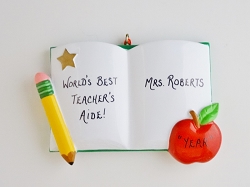 World's Best
Teacher's
Aide!
Mrs. Roberts
YEAR